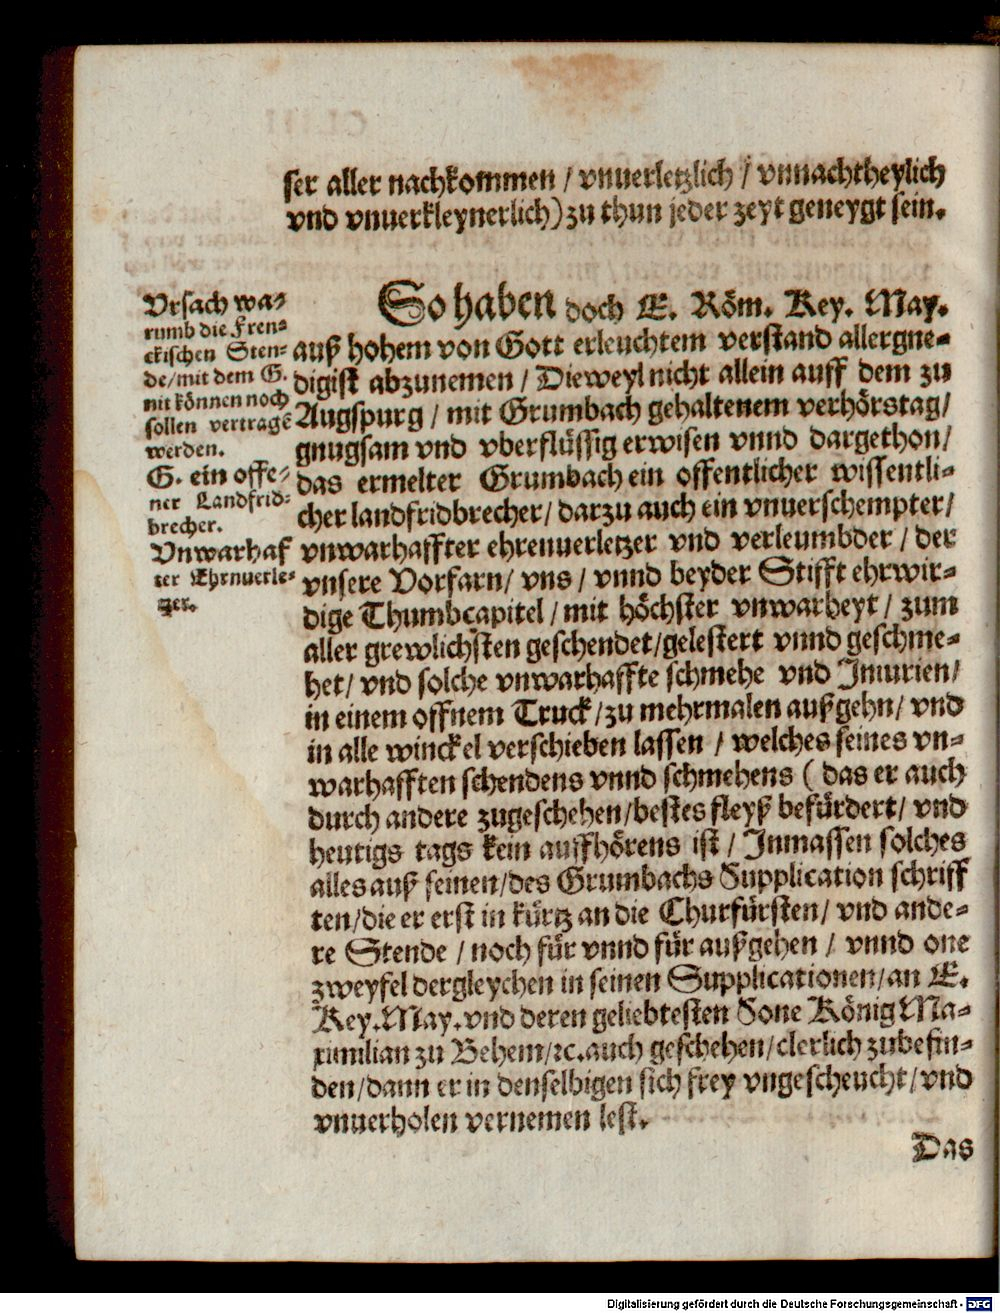 ser aller nachkommen / vnuerletzlich / vnnachtheylich
vnd vnuerkleynerlich) zu thun jeder zeyt geneygt sein.
Vrsach wa-
rumb die Fren-
ckischen Sten-
de/mit dem G.
nit können noch
sollen vertragē
werden.
G. ein offe-
ner Landfrid-
brecher.
Vnwarhaf
ter Ehrnuerle-
tzer.
So haben doch E. Röm. Key. May.
auß hohem von Gott erleuchtem verstand allergne-
digist abzunemen / Dieweyl nicht allein auff dem zu
Augspurg / mit Grumbach gehaltenem verhörstag/
gnugsam vnd vberflüssig erwisen vnnd dargethon/
das ermelter Grumbach ein offentlicher wissentli-
cher landfridbrecher/ darzu auch ein vnuerschempter/
vnwarhaffter ehrenuerletzer vnd verleumbder / der
vnsere Vorfarn/ vns / vnnd beyder Stifft ehrwir-
dige Thumbcapitel / mit höchster vnwarheyt / zum
aller grewlichsten geschendet/gelestert vnnd geschme-
het/ vnd solche vnwarhaffte schmehe vnd Iniurien/
in einem offnem Truck/zu mehrmalen außgehn/ vnd
in alle winckel verschieben lassen / welches seines vn-
warhafften schendens vnnd schmehens ( das er auch
durch andere zugeschehen/bestes fleyß befürdert/ vnd
heutigs tags kein auffhörens ist / Inmassen solches
alles auß seinen/des Grumbachs Supplication schriff
ten/die er erst in kürtz an die Churfürsten/ vnd ande-
re Stende / noch für vnnd für außgehen / vnnd one
zweyfel dergleychen in seinen Supplicationen/an E.
Key.May.vnd deren geliebtesten Sone König Ma-
ximilian zu Behem/ꝛc.auch geschehen/clerlich zubefin-
den/dann er in denselbigen sich frey vngescheucht/vnd
vnuerholen vernemen lest.
Das
Digitalisierung gefördert durch die Deutsche Forschungsgemeinschaft - DFG